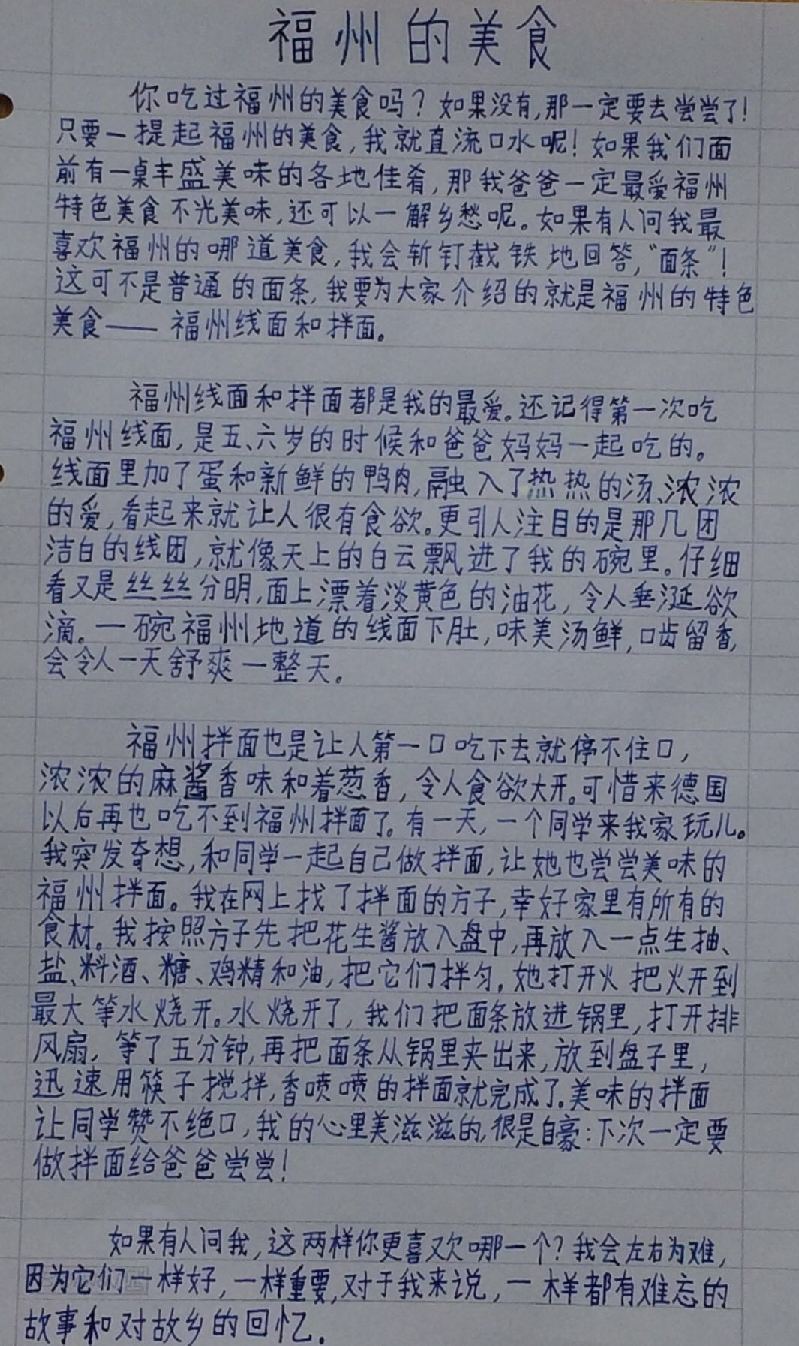 福州的美食
你吃过福州的美食吗？如果没有，那一定要去尝尝了！
只要一提起福州的美食，我就直流口水呢！如果我们面
前有一桌丰盛美味的各地佳肴，那我爸爸一定最爱福州
特色美食不光美味，还可以一解乡愁呢。如果有人问我最
喜欢福州的哪道美食，我会斩钉截铁地回答，“面条”！
这可不是普通的面条，我要为大家介绍的就是福州的特色
美食——福州线面和拌面。
福州线面和拌面都是我的最爱。还记得第一次吃
福州线面，是五、六岁的时候和爸爸妈妈一起吃的。
线面里加了蛋和新鲜的鸭肉，融入了热热的汤、浓浓
的爱，看起来就让人很有食欲。更引人注目的是那几团
洁白的线团，就像天上的白云飘进了我的碗里。仔细
看又是丝丝分明，面上漂着淡黄色的油花，令人垂涎欲
滴。一碗福州地道的线面下肚，味美汤鲜，口齿留香，
会令人一天舒爽一整天。
福州拌面也是让人第一口吃下去就停不住口，
浓浓的麻酱香味和着葱香，令人食欲大开。可惜来德国
以后再也吃不到福州拌面了。有一天，一个同学来我家玩儿。
我突发奇想，和同学一起自己做拌面，让她也尝尝美味的
福州拌面。我在网上找了拌面的方子，幸好家里有所有的
食材。我按照方子先把花生酱放入盘中，再放入一点生抽、
盐、料酒、糖、鸡精和油，把它们拌匀。她打开火把火开到
最大等水烧开。水烧开了，我们把面条放进锅里，打开排
风扇，等了五分钟，再把面条从锅里夹出来，放到盘子里，
迅速用筷子搅拌，香喷喷的拌面就完成了。美味的拌面
让同学赞不绝口，我的心里美滋滋的，很是自豪：下次一定要
做拌面给爸爸尝尝！
如果有人问我，这两样你更喜欢哪一个？我会左右为难，
因为它们一样好，一样重要，对于我来说，一样都有难忘的
故事和对故乡的回忆。